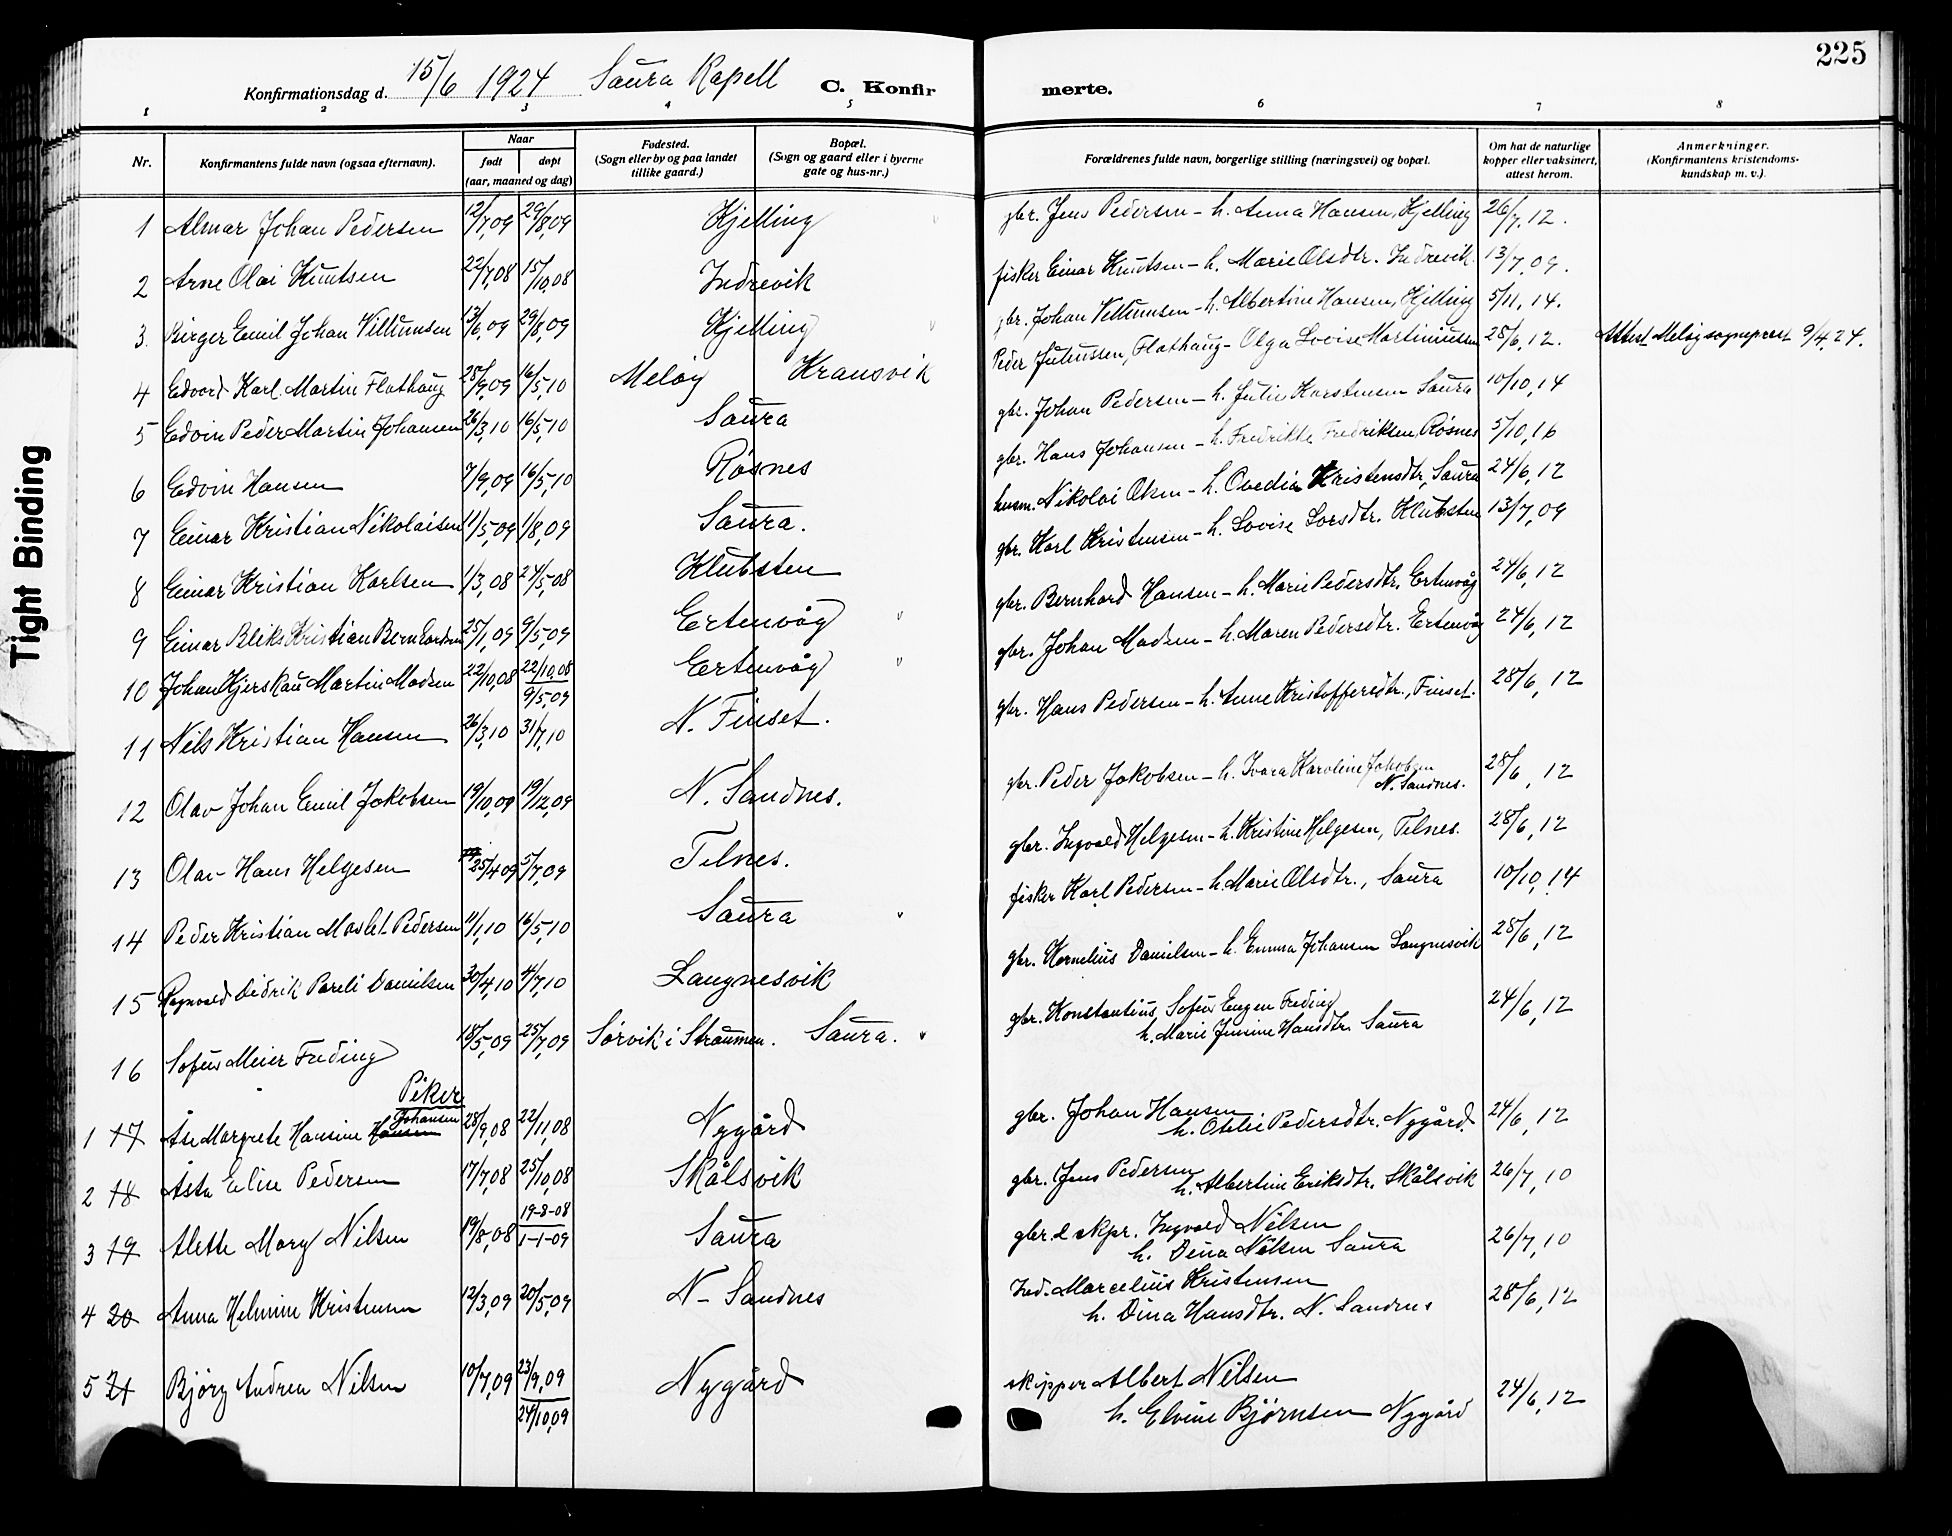 225
Konfirmationsdag d. 15/6 1924 Saura Kapell C. Konfir merte.
1 2 3 4 5 6 7 8
Nr.
Konfirmantens fulde navn (ogsaa efternavn).
Naar
født
døpt
(aar, maaned og dag)
Fødested.
(Sogn eller by og paa landet
tillike gaard.)
Bopæl.
(Sogn og gaard eller i byerne
gate og hus-nr.)
Forældrenes fulde navn, borgerlige stilling (næringsvei) og bopæl.
Om hat de naturlige
kopper eller vaksinert,
attest herom.
Anmerkninger.
(Konfirmantens kristendoms-
kundskap m. v.).
1 Almar Johan Pedersen 12/7,09 29/8,09 Kjelling gbr. Jens Pedersen - h. Anna Hansen, Kjelling 26/7,12.
2 Arne Olai Knutsen 22/7,08 15/10,08 Indrevik fisker Einar Knutsen - h. Marie Olsdtr. Indrevik 13/7,09.
3. Birger Emil Johan Villumsen 13/6,09 29/8,09 Kjelling gbr. Johan Villumsen - h. Albertine Hansen, Kjelling 5/11,14.
4 Edvard Karl Martin Flathaug 25/9,09 16/5,10 Meløy Kransvik Peder Juliussen, Flathaug - Olga Lovise Martiniussen 28/6,12. Attest Meløy sogneprest 9/4,24.
5 Edvin Peder Martin Johansen 26/3,10 16/5,10 Saura gbr. Johan Pedersen - h. Julie Karstensen Saura 10/10,14
6 Edvin Hansen 7/9,09 16/5,10 Røsnes gbr. Hans Johansen - h. Fredrikke Fredriksen, Røsnes 5/10,16
7 Einar Kristian Nikolaisen 11/5,09 1/8,09 Saura. husm. Nikolai Olsen - h. Ovedia Kristensdtr, Saura 24/6,12
8 Einar Kristian Karlsen 1/3,08 24/5,08 Klubsten gbr. Karl Kristensen - h. Lovise Larsdtr. Klubsten 13/7,09
9 Einar Bliks Kristian Bernhardsen 25/1,09 9/5,09 Ertenvåg gbr. Bernhard Hansen - h. Marie Pedersdtr. Ertenvåg 24/6,12
10 Johan Hjerskau Martin Madsen 22/10,08 22/10,08 9/5,09 Ertenvåg gbr. Johan Madsen - h. Maren Pedersdtr. Ertenvåg 24/6,12
11 Nils Kristian Hansen 26/3,10 31/7,10 N. Finset. gbr. Hans Pedersen - h. Anne Kristoffersdtr., Finset. 28/6,12
12 Olav Johan Emil Jakobsen 19/10,09 19/12,09 N. Sandnes. gbr. Peder Jakobsen - h. Ivara Karoline Jakobsen
N. Sandnes. 28/6,12
13 Olav Hans Helgesen 25/4 09 5/7,09 Telnes. gbr. Ingvald Helgesen - h. Kristine Helgesen, Telnes. 28/6,12
14 Peder Kristian Maslet Pedersen 11/1,10 16/5,10 Saura fisker Karl Pedersen - h. Marie Olsdtr., Saura 10/10,14
15 Ragnvald Didrik Pareli Danielsen 30/4,10 4/7,10 Langnesvik gbr. Kornelius Danielsen - h. Emma Johansen Langnesvik 28/6,12
16 Sofus Meier Freding 18/5,09 25/7,09 Sørvik i Straumen. Saura. gbr. Konstantius Sofus Eugen Freding
h. Marie Jensine Hansdtr. Saura 24/6,12
Piker
1 17 Åse Margrete Hansine Hansen Johansen 28/9,08 22/11,08 Nygård gbr. Johan Hansen
h. Otelie Pedersdtr. Nygård. 24/6,12
2 18 Åsta Eline Pedersen 17/7,08 25/10,08 Skålsvik gbr. Jens Pedersen
h. Albertine Eriksdtr. Skålsvik 26/7,10
3 19 Alette Mary Nilsen 19/8,08 19-8-08 1-1-09 Saura gbr. & skpr. Ingvald Nilsen
h. Dina Nilsen Saura 26/7,10
4 20 Anna Helmine Kristensen 12/3,09 20/5,09 N- Sandnes Ind. Marcelius Kristensen
h. Dina Hansdtr. N. Sandnes 28/6,12
5 21 Bjørg Andrea Nilsen 10/7,09 23/9,09 24/10,09 Nygård skipper Albert Nilsen
h. Elvine Bjørnsen Nygård 24/6,12
Tight Binding